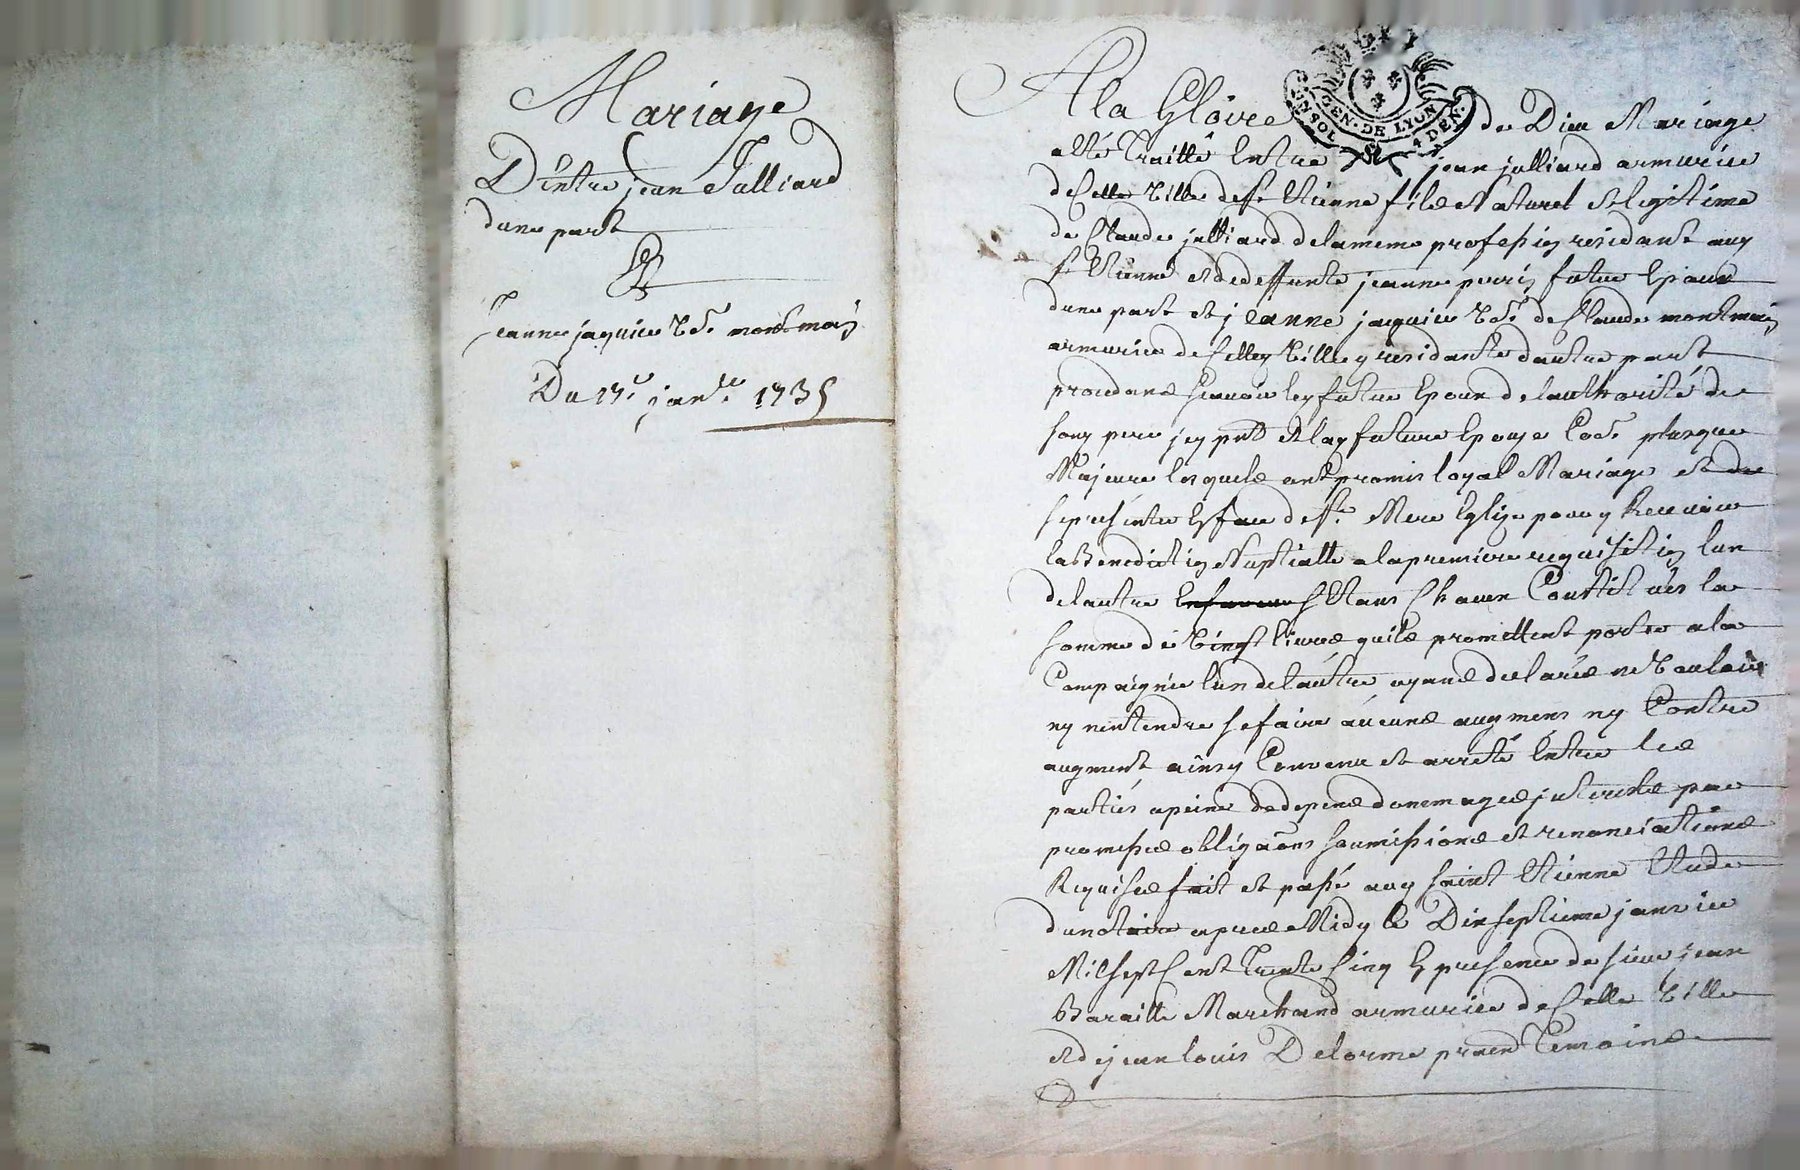 Mariage
D'entre jean Julliard
dune part
Jeanne jaquier Vve. montmay
Du 17e janer. 1735
GEN. DE LYON
UN SOL 4 DEN.
A la Gloire de Dieu Mariage
a êté Traitté Entre jean julliard armurier
de Cette Ville de St. Etienne fils Naturel et legitime
de Claude julliard de la meme profession residant aud
St. Etienne et de deffunte jeanne futur Epoux
dune part et jeanne jaquier Vve. de Claude montmay
armurier de Cette Ville y residante dautre part
procedans scavoir led futur Epoux de lauthorité de
son pere icy pnt et lad future Epouse Coe. plus que
Majeure lesquels ont promis loyal Mariage et de
se presenter En face de Ste. Mere Eglise pour y Recevoir
la Benediction Nuptialle a la premiere requisition lun
de lautre Chacun Constitués la
somme de Vingt livres quils promettent porter a la
Compagnie lun de lautre ayans declarés ne Vouloir
ny nentendre se faire aucuns augmens ny Contre
augment ainsy Convenu et arreté Entre les
parties a peine de depens domages interets par
promesses obligaons soumissions et renonciations
Requises fait et passé aud Saint Etienne Etude
du notaire apres Midy le Dix septieme janvier
Mil sept Cent Trente Cinq En presence de sieur jean
Baraille Marchand armurier de Cette Ville
et de jean louis Delorme Temoins